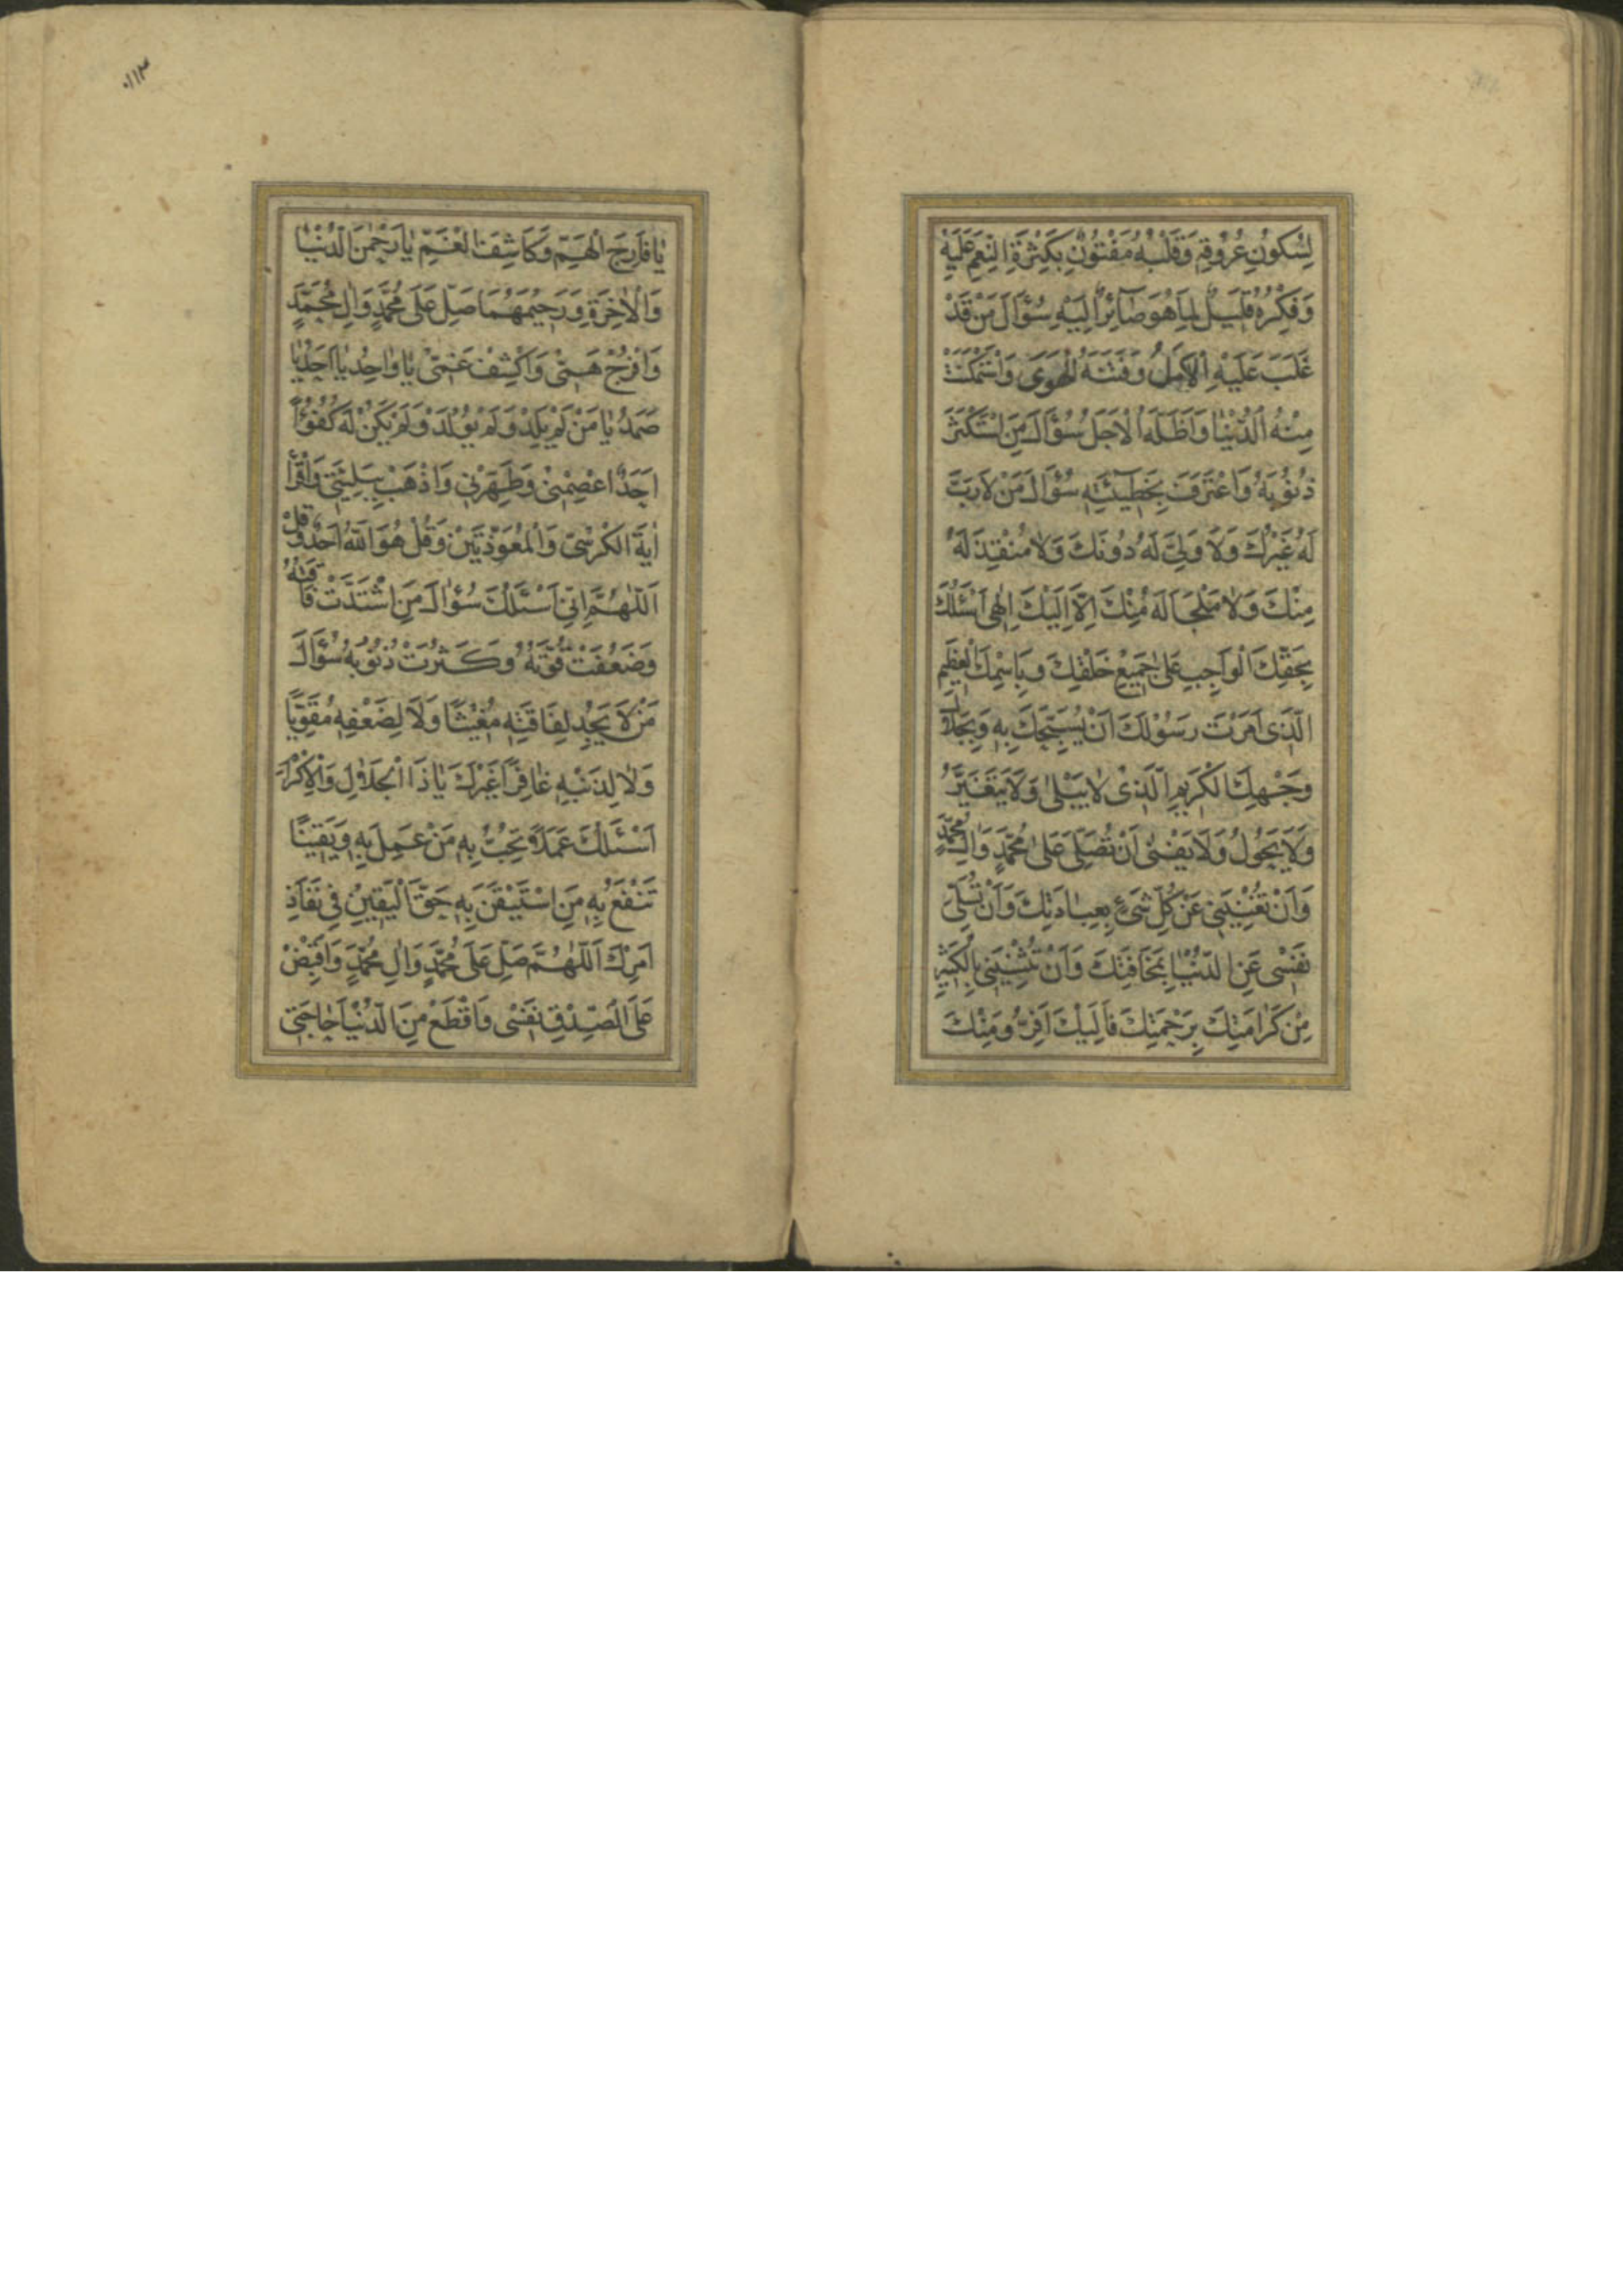 لِسُكُونِ عُرُوقِهِ وَقَلْبُهُ مَفْتُونٌ بِكَثْرَةِ النِّعَمِ عَلَيْهِ
وَفِكْرُهُ قَلِيلٌ لِمَا هُوَ صَآئِرٌ اِلَيْهِ سُؤَالَ مَنْ قَدْ
غَلَبَ عَلَيْهِ الْاَمَلُ وَفَتَنَهُ الْهَوٰى وَاسْتَمْكَنَتْ
مِنْهُ الدُّنْيَا وَاَظَلَّهُ الْاَجَلُ سُؤَالَ مَنِ اسْتَكْثَرَ
ذُنُوبَهُ وَاعْتَرَفَ بِخَطِيئَتِهِ سُؤَالَ مَنْ لَا رَبَّ
لَهُ غَيْرُكَ وَلَا وَلِيَّ لَهُ دُونَكَ وَلَا مُنْقِذَ لَهُ
مِنْكَ وَلَا مَلْجَاَ لَهُ مِنْكَ اِلَّا اِلَيْكَ اِلٰهِى اَسْئَلُكَ
بِحَقِّكَ الْوَاجِبِ عَلٰى جَمِيعِ خَلْقِكَ وَبِاسْمِكَ الْعَظِيمِ
الَّذِى اَمَرْتَ رَسُولَكَ اَنْ يُسَبِّحَكَ بِهِ وَبِجَلَالِ
وَجْهِكَ الْكَرِيمِ الَّذِى لَا يَبْلٰى وَلَا يَتَغَيَّرُ
وَلَا يَحُولُ وَلَا يَفْنٰى اَنْ تُصَلِّىَ عَلٰى مُحَمَّدٍ وَاٰلِ مُحَمَّدٍ
وَاَنْ تُغْنِيَنِى عَنْ كُلِّ شَىْءٍ بِعِبَادَتِكَ وَاَنْ تُسَلِّىَ
نَفْسِى عَنِ الدُّنْيَا بِمَخَافَتِكَ وَاَنْ تُثْنِيَنِى بِالْكَثِيرِ
مِنْ كَرَامَتِكَ بِرَحْمَتِكَ فَاِلَيْكَ اَفِرُّ وَمِنْكَ
١١٣
يَا فَارِجَ الْهَمِّ وَكَاشِفَ الْغَمِّ يَا رَحْمٰنَ الدُّنْيَا
وَالْاٰخِرَةِ وَرَحِيمَهُمَا صَلِّ عَلٰى مُحَمَّدٍ وَاٰلِ مُحَمَّدٍ
وَافْرُجْ هَمِّى وَاكْشِفْ غَمِّى يَا وَاحِدُ يَا اَحَدُ يَا
صَمَدُ يَا مَنْ لَمْ يَلِدْ وَلَمْ يُولَدْ وَلَمْ يَكُنْ لَهُ كُفُوًا
اَحَدٌ اعْصِمْنِى وَطَهِّرْنِى وَاذْهَبْ بِبَلِيَّتِى وَاقْرَأْ
اٰيَةَ الْكُرْسِىِّ وَالْمُعَوَّذَتَيْنِ وَقُلْ هُوَ اللّٰهُ اَحَدٌ وَقُلْ
اَللّٰهُمَّ اِنِّى اَسْئَلُكَ سُؤَالَ مَنِ اشْتَدَّتْ فَاقَتُهُ
وَضَعُفَتْ قُوَّتُهُ وَكَثُرَتْ ذُنُوبُهُ سُؤَالَ
مَنْ لَا يَجِدُ لِفَاقَتِهِ مُغِيثًا وَلَا لِضَعْفِهِ مُقَوِّيًا
وَلَا لِذَنْبِهِ غَافِرًا غَيْرَكَ يَا ذَا الْجَلَالِ وَالْاِكْرَامِ
اَسْئَلُكَ عَمَلًا تُحِبُّ بِهِ مَنْ عَمِلَ بِهِ وَيَقِينًا
تَنْفَعُ بِهِ مَنِ اسْتَيْقَنَ بِهِ حَقَّ الْيَقِينِ فِى نَفَاذِ
اَمْرِكَ اَللّٰهُمَّ صَلِّ عَلٰى مُحَمَّدٍ وَاٰلِ مُحَمَّدٍ وَاقْبِضْ
عَلَى الصِّدْقِ نَفْسِى وَاقْطَعْ مِنَ الدُّنْيَا حَاجَتِى